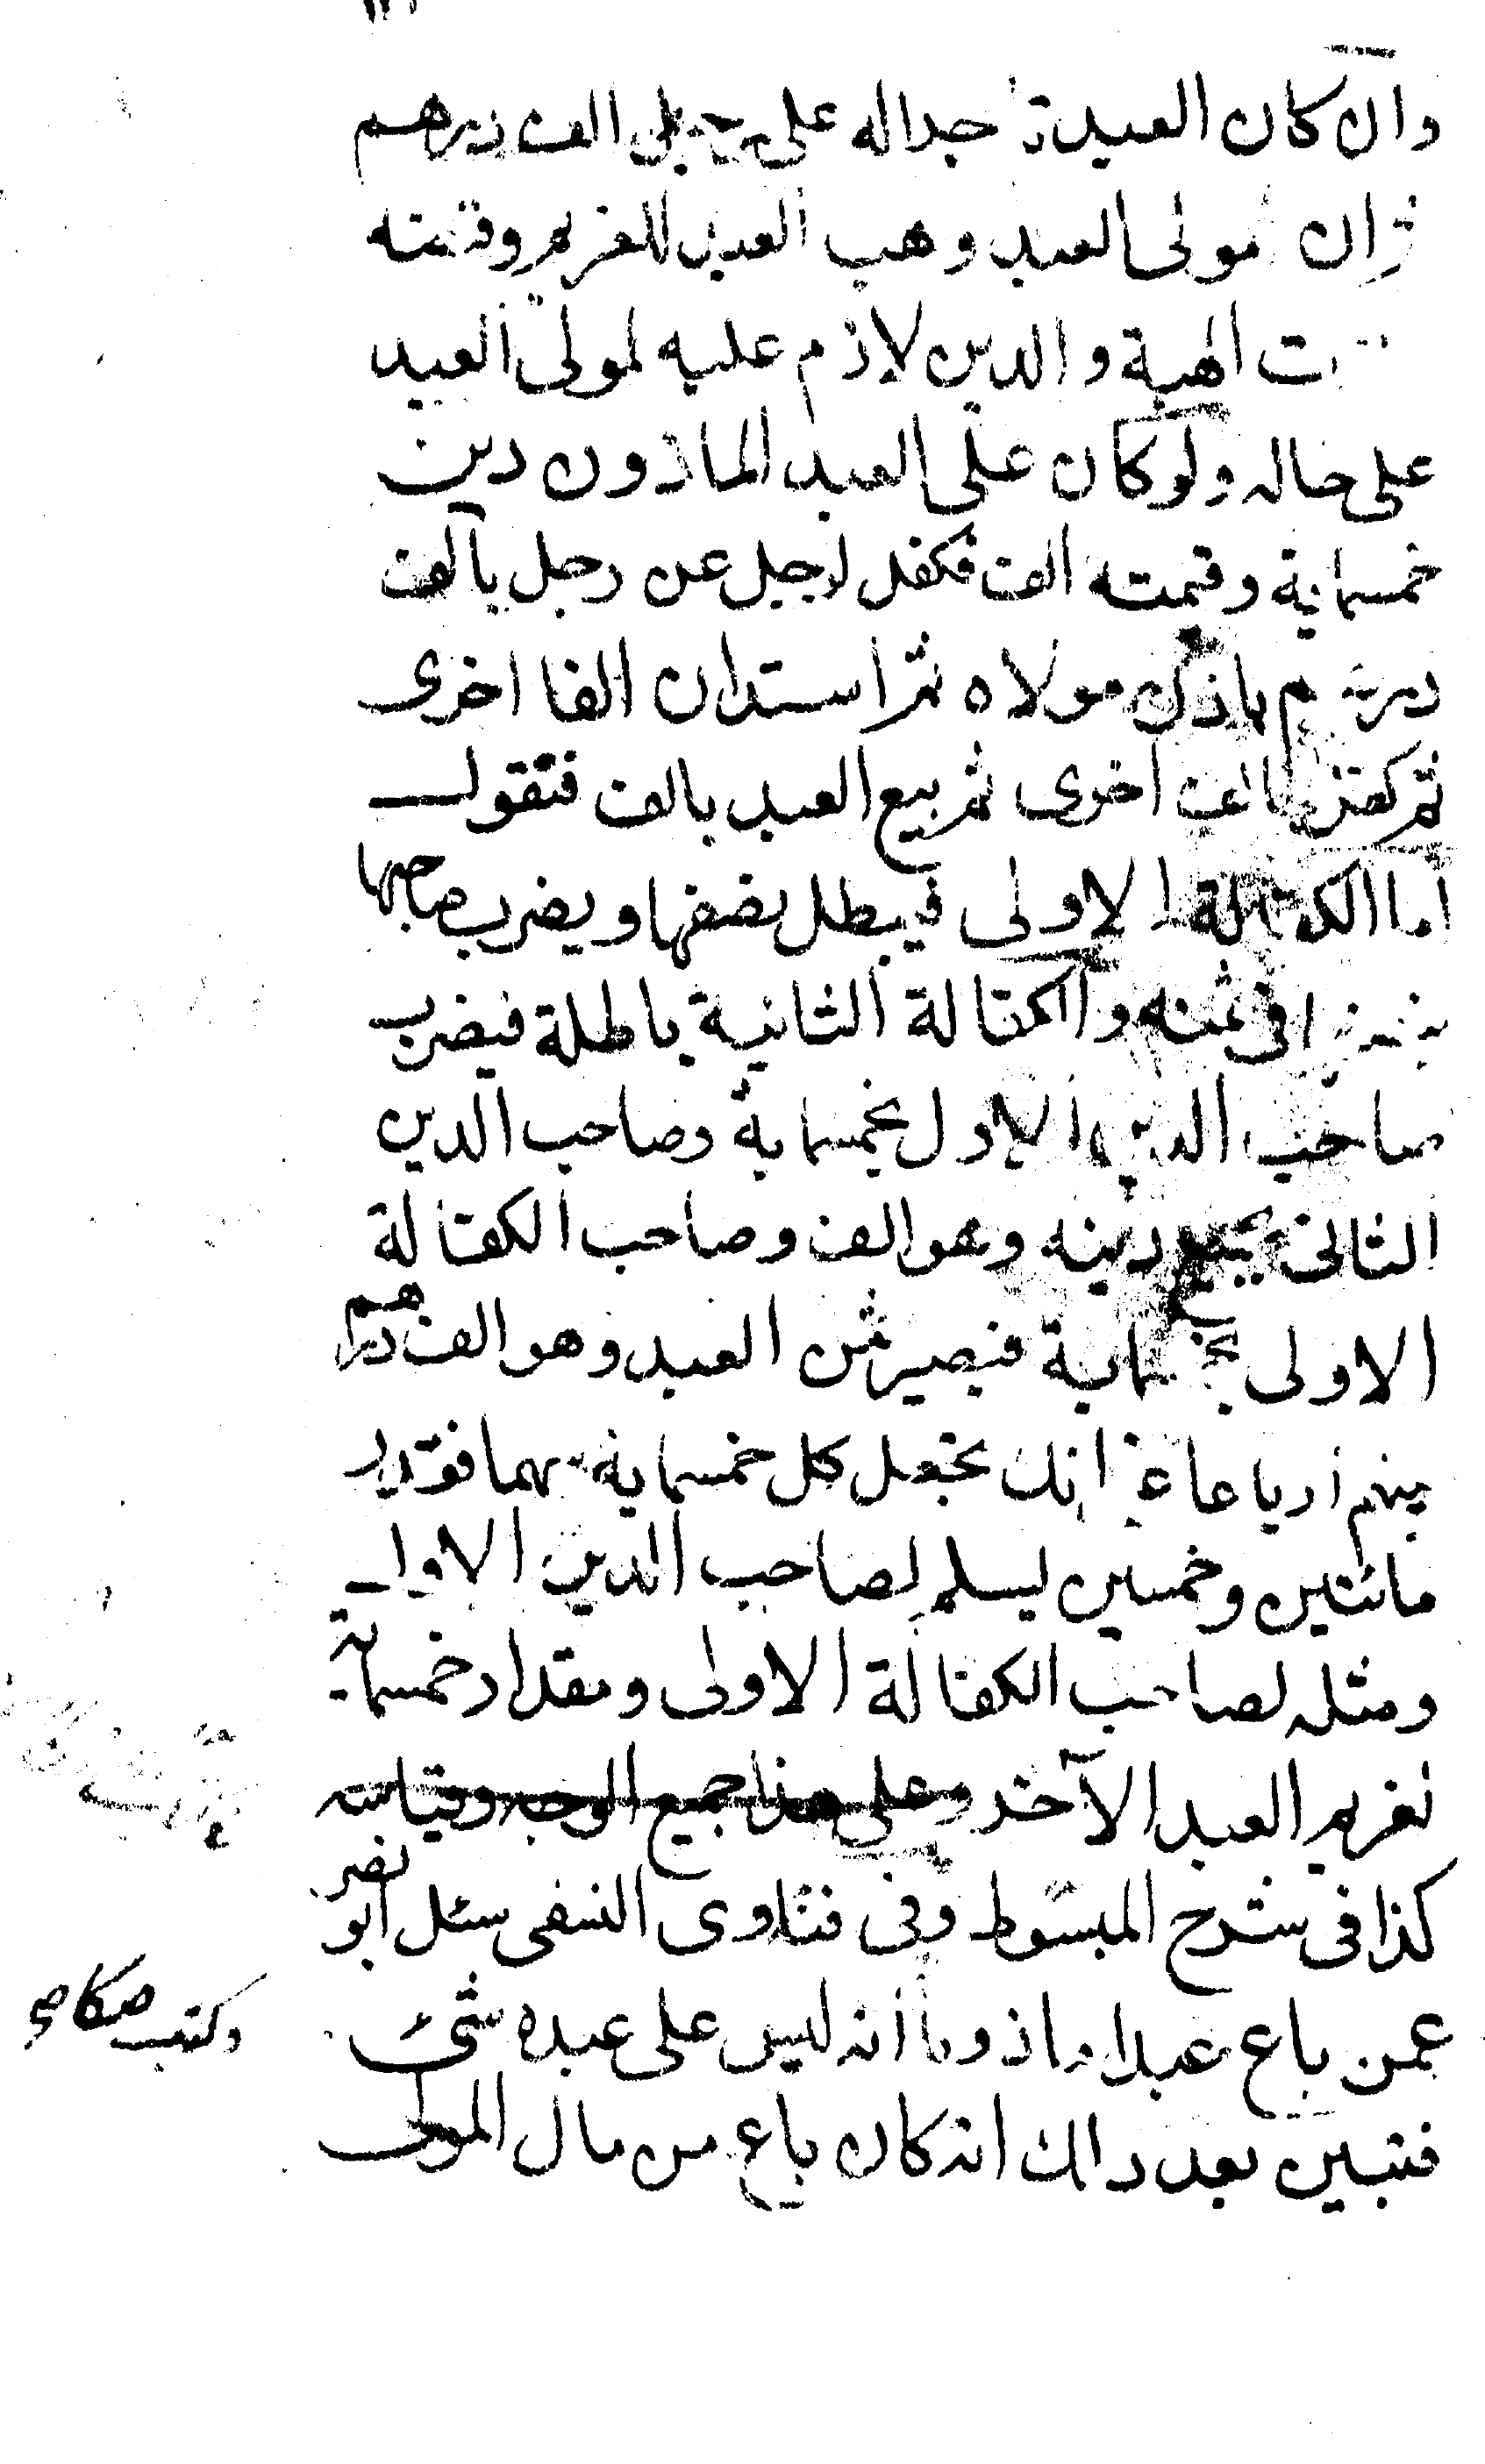 وان كان العبد جداله على رجل الف درهم
ثم ان مولى العبد وهب العبد للغريم وقيمته
الهبة والدين لازم عليه لمولى العبد
على حاله ولو كان على العبد الماذون دين
خمسماية وقيمته الف فكفل لرجل عن رجل بالف
درهم باذن مولاه ثم استدان الفا اخرى
ثم كفل بالف اخرى ثم بيع العبد بالف فنقول
اما الكفالة الاولى فيبطل نصفها ويضرب صاحبها
بنصفها فى ثمنه والكفالة الثانية باطلة فيضرب
صاحب الدين الاول بخمسماية وصاحب الدين
الثانى بجميع دينه وهو الف وصاحب الكفالة
الاولى بخمسماية فيصير ثمن العبد وهو الف درهم
بينهم ارباعا انك تجعل كل خمسماية سهما فقدر
مائتين وخمسين ليسلم لصاحب الدين الاول
ومثله لصاحب الكفالة الاولى ومقدار خمسماية
لغريم العبد الآخر وعلى هذا جميع الوجه وقياسه
كذا فى شرح المبسوط وفى فتاوى النسفى سئل ابو نصر
عمن باع عبدا ماذونا انه ليس على عبده شئ
وكتب صكا
فتبين بعد ذالك انه كان باع من مال المولى